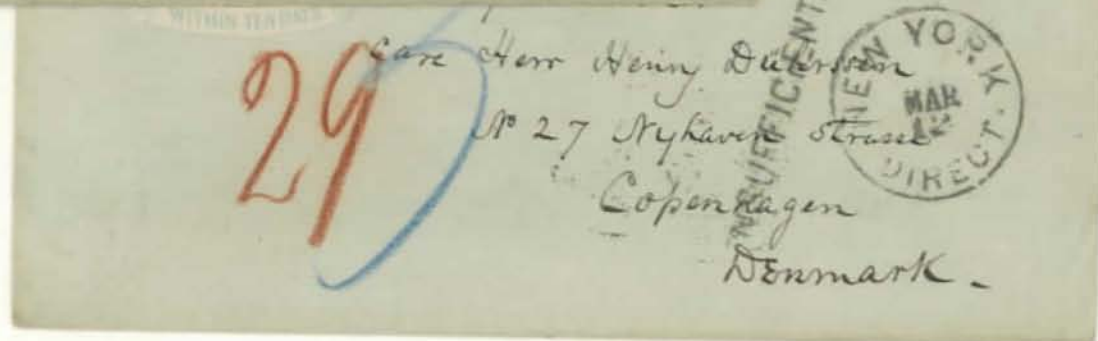 WITHIN TEN DAYS
Care Herr Henry
No 27 Nyhaven Strasse
Copenhagen
Denmark.
29
INSUFFICIENT
NEW YORK.
MAR
12
DIRECT.